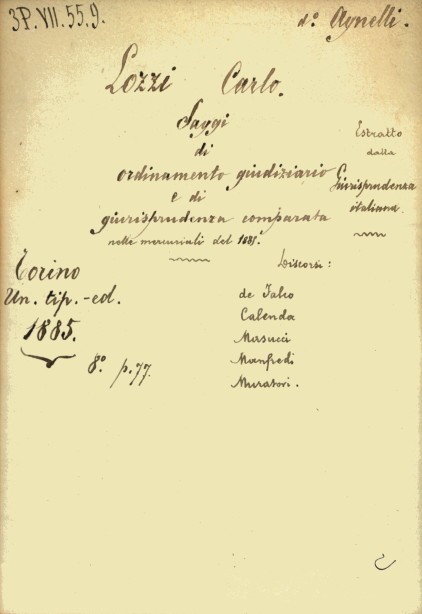 3P. VII. 55. 9.
d.º Agnelli.
Lozzi Carlo.
Saggi
di
ordinamento giudiziario
e di
giurisprudenza comparata
nelle mercuriali del 1885.
Estratto
dalla
Giurisprudenza
italiana.
Torino
Un. tip.-ed.
1885.
8.º p. 77.
Discorsi:
de Falco
Calenda
Masucci
Manfredi
Muratori.